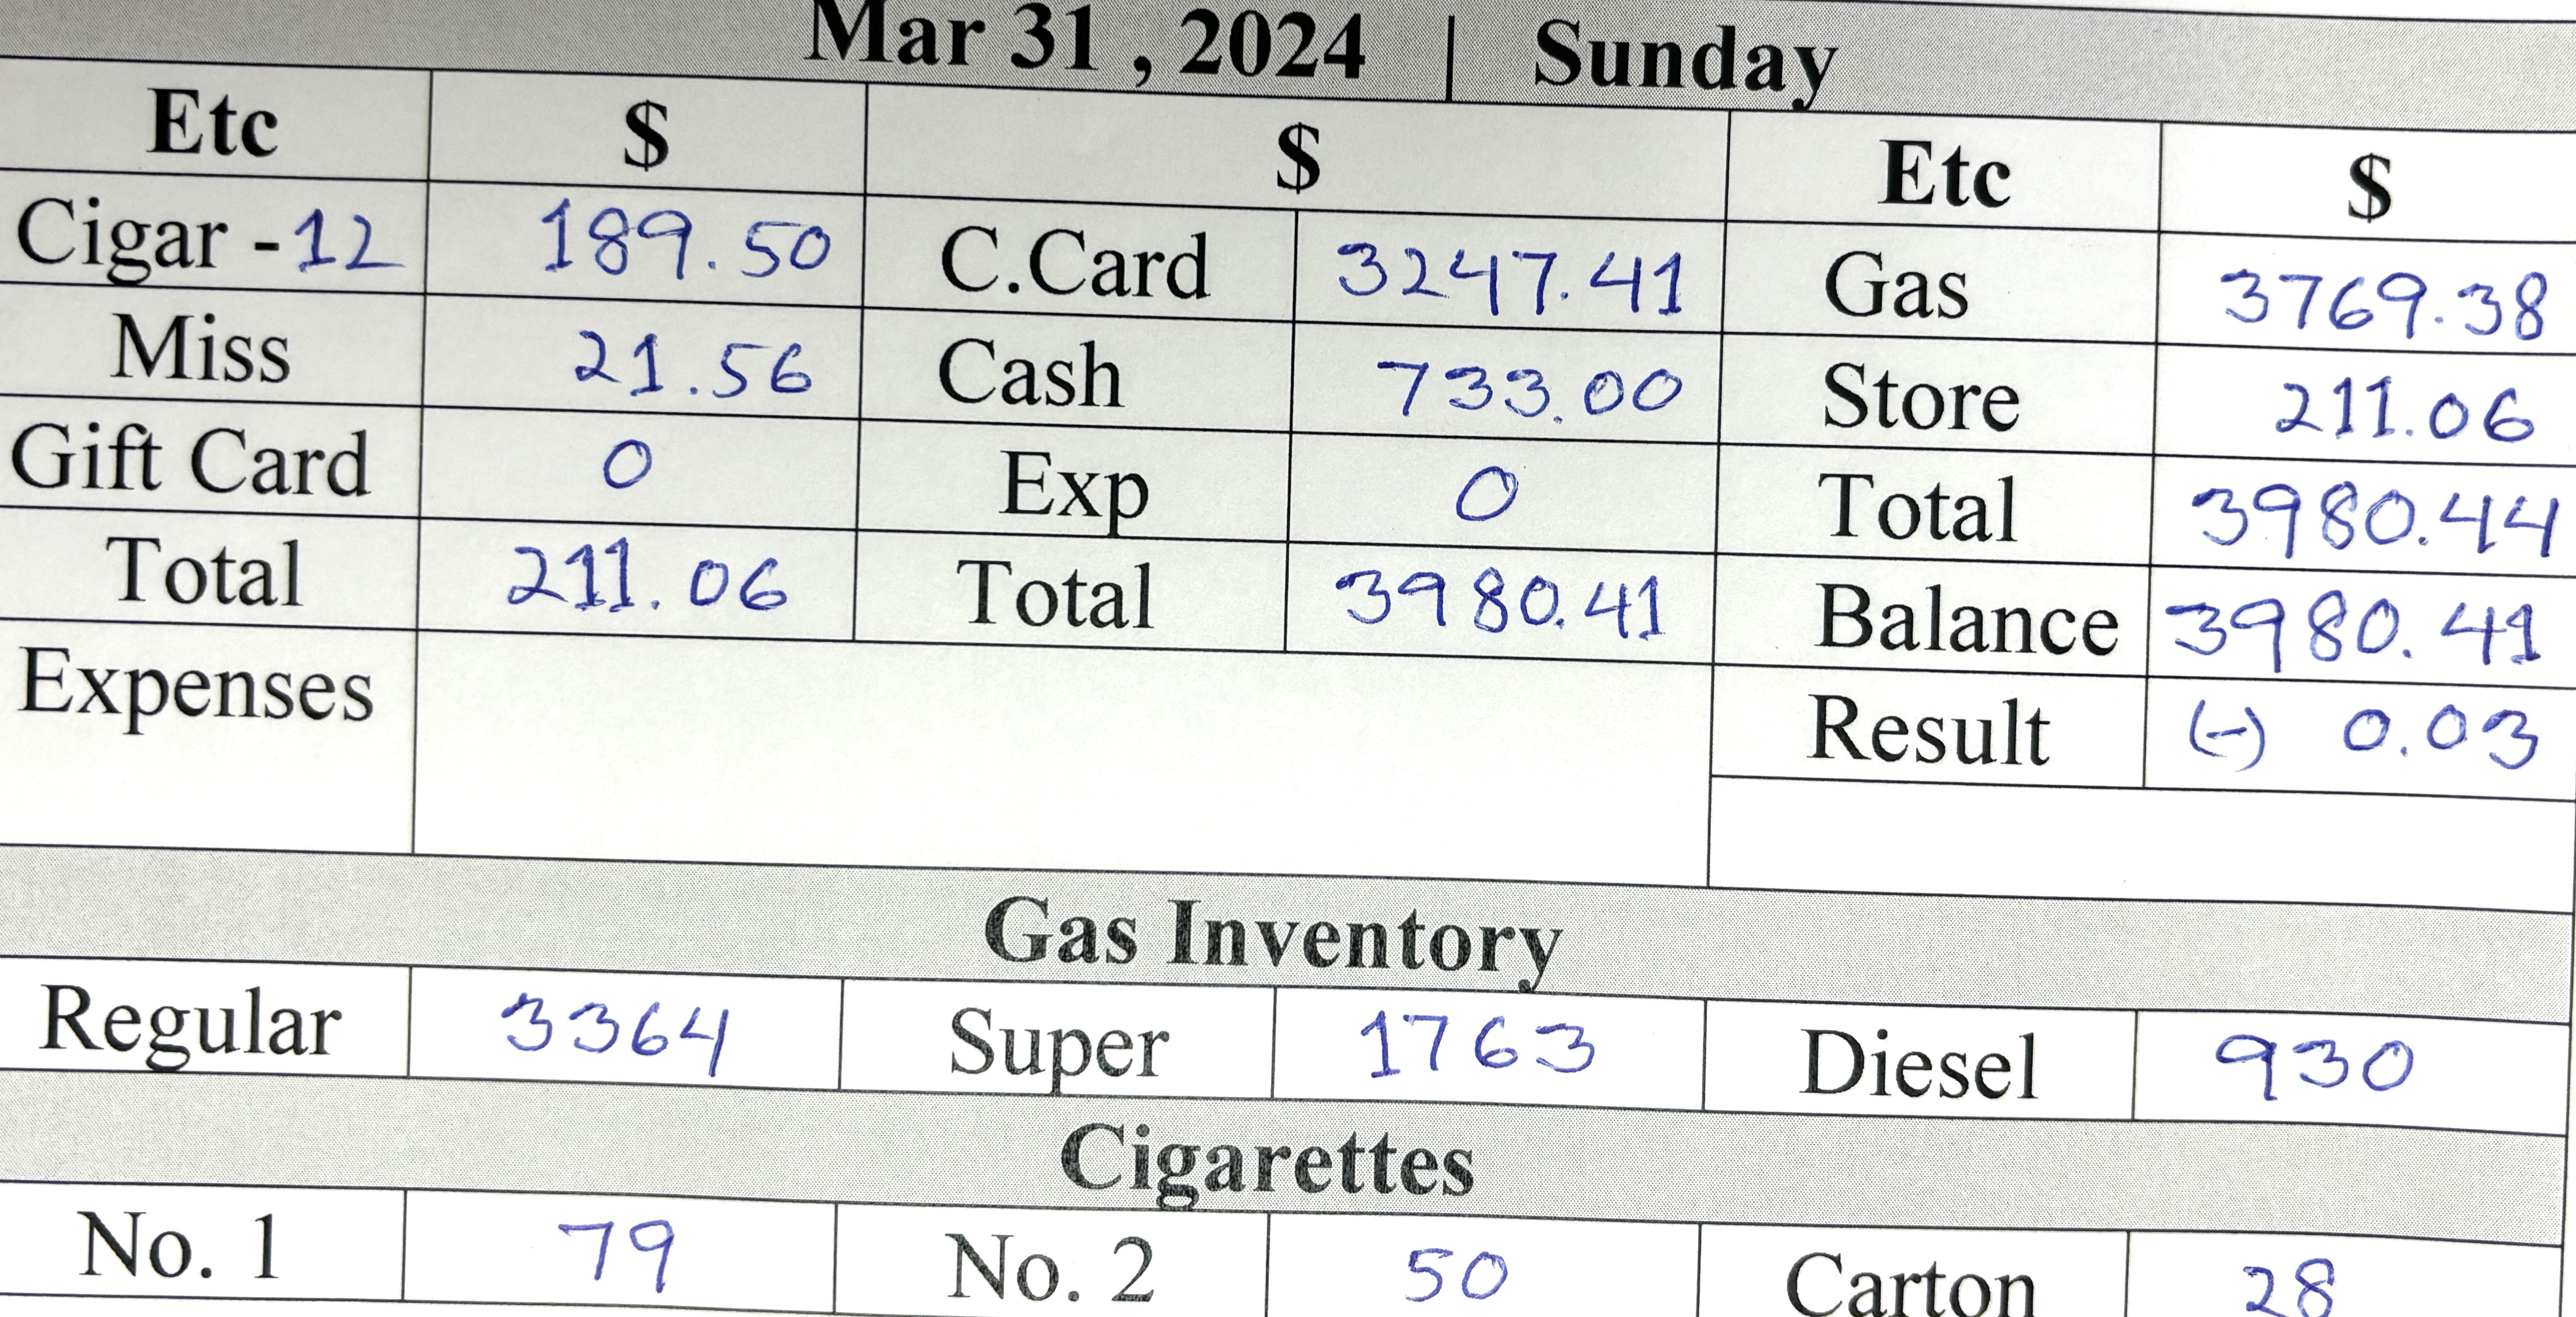 Mar 31 , 2024 | Sunday
Etc $ $ Etc $
Cigar -12 189.50 C.Card 3247.41 Gas 3769.38
Miss 21.56 Cash 733.00 Store 211.06
Gift Card 0 Exp 0 Total 3980.44
Total 211.06 Total 3980.41 Balance 3980.41
Expenses Result (-) 0.03
Gas Inventory
Regular 3364 Super 1763 Diesel 930
Cigarettes
No. 1 79 No. 2 50 Carton 28